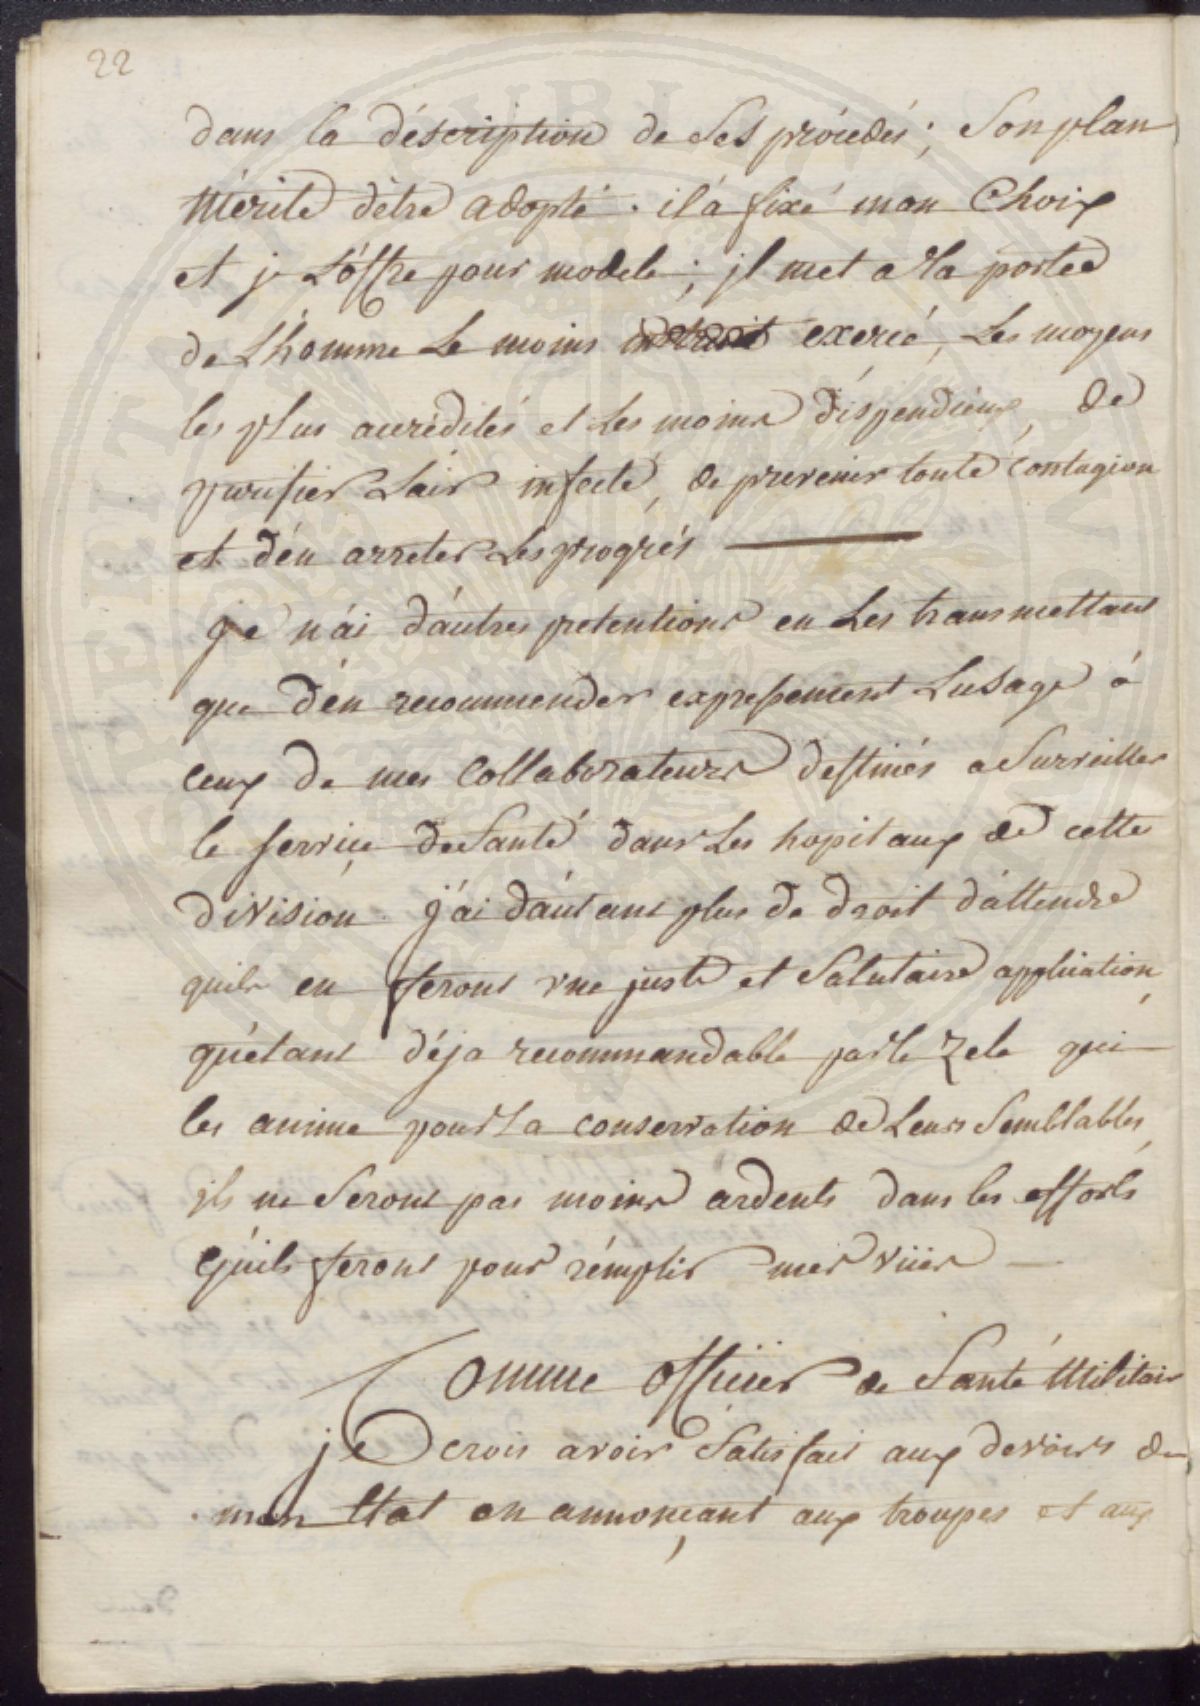 22
dans la déscription de ses prócedés; Son plan
Mérite d'etre adopté. il á fixé mon Choix
et je L'óffre pour modele; jl met a la portée
de L'homme Le moins exercé, Les moyens
les plus accrédités et Les moins dispendieux, de
purifier L'air infecté, de prevenir toute contagion
et d'én arreter Les progrés
je n'ái d'áutres pretentions en Les transmettant
que d'én recommender expressement L'usage á
ceux de mes Collaborateurs destinés a Surveiller
le service de Santé dans Les hopitaux de cette
division. j'ái d'áutant plus de droit d'áttendre
quils en feront une juste et Salutaire application,
qu'étant déja recommandable par le Zele qui
les anime pour la conservation de Leurs Semblables,
jls ne Seront pas moins ardents dans les efforts
Qu'ils feront pour rémplir mes vües
Comme officier de Santé Militair
je crois avoir Satisfait aux devoirs de
mon Etat en annonçant aux troupes et aux